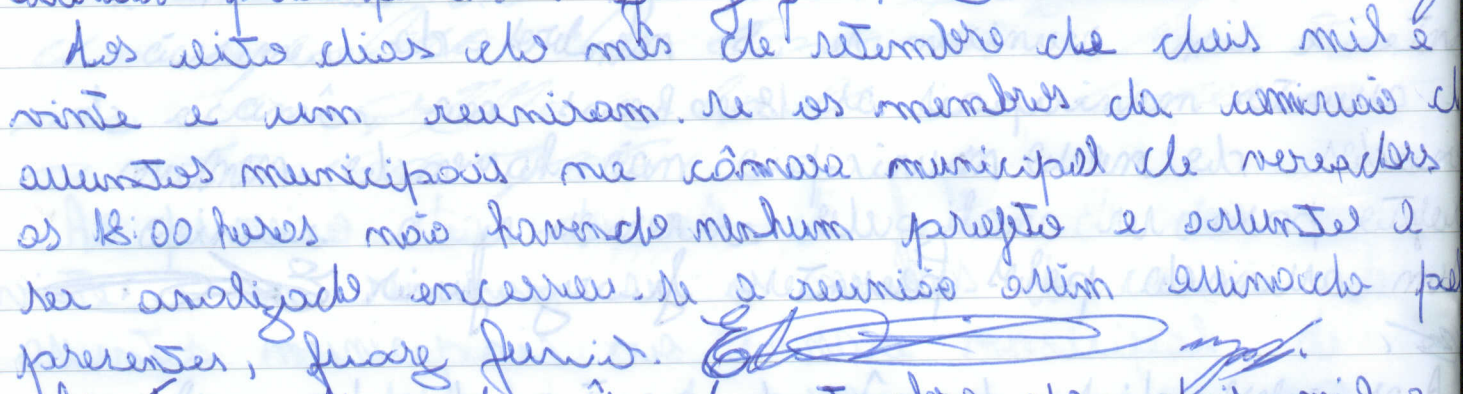 Aos oito dias do mês de setembro de dois mil e
vinte e um reuniram-se os membros da comissão d
assuntos municipais na câmara municipal de vereadores
as 18:00 horas não havendo nenhum projeto e assunto a
ser analizado encerrou-se a reunião assim assinada pel
presentes, Juarez Junior.